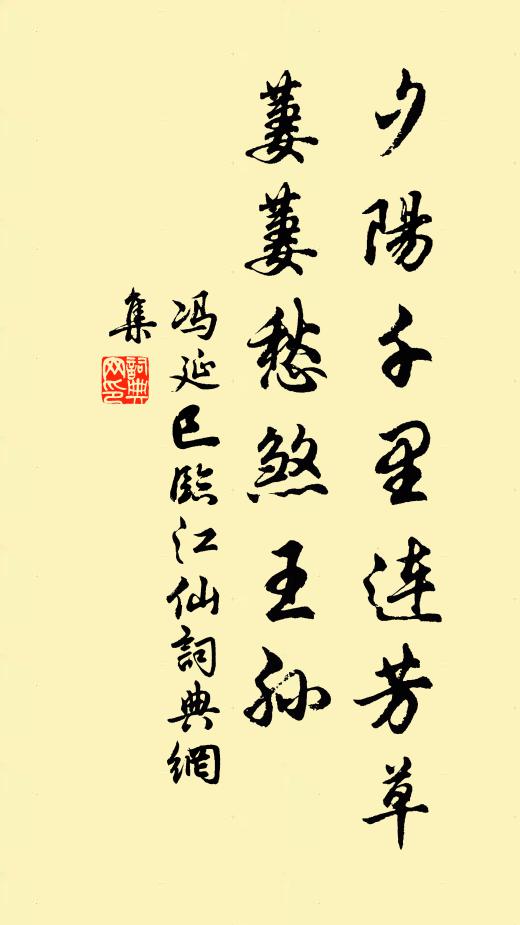 夕陽千里連芳草
萋萋愁煞王孫
冯延巳臨江仙詞典網
集
詞典網印